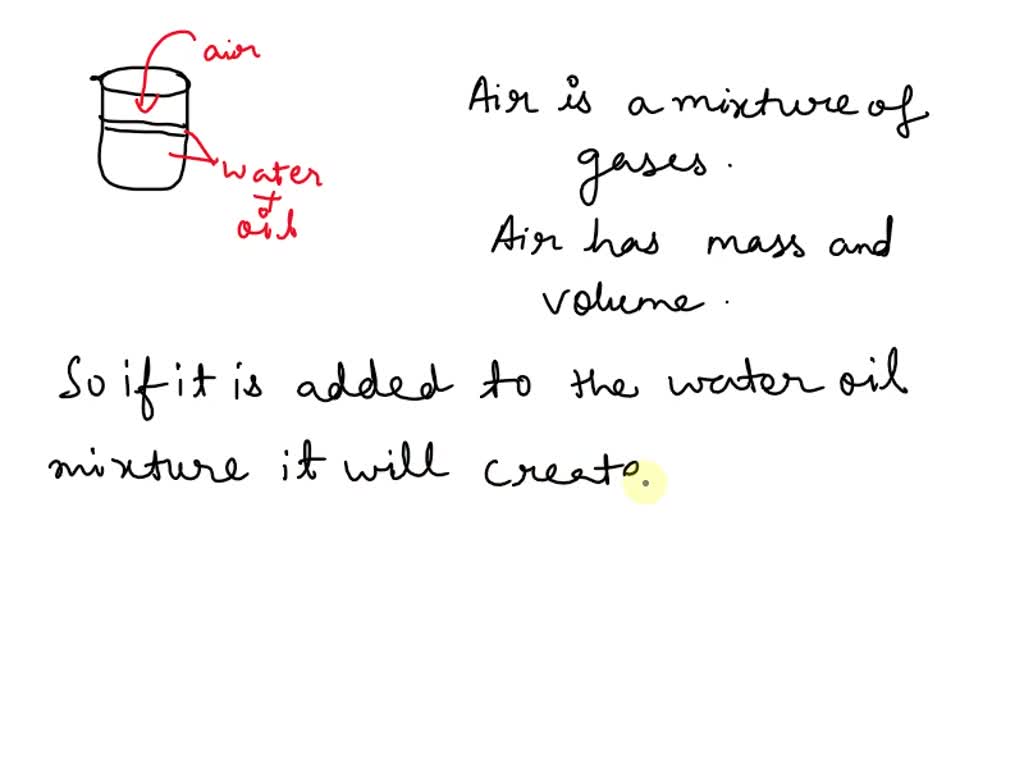 air
water
+
oil
Air is a mixture of
gases.
Air has mass and
volume.
So if it is added to the water oil
mixture it will create